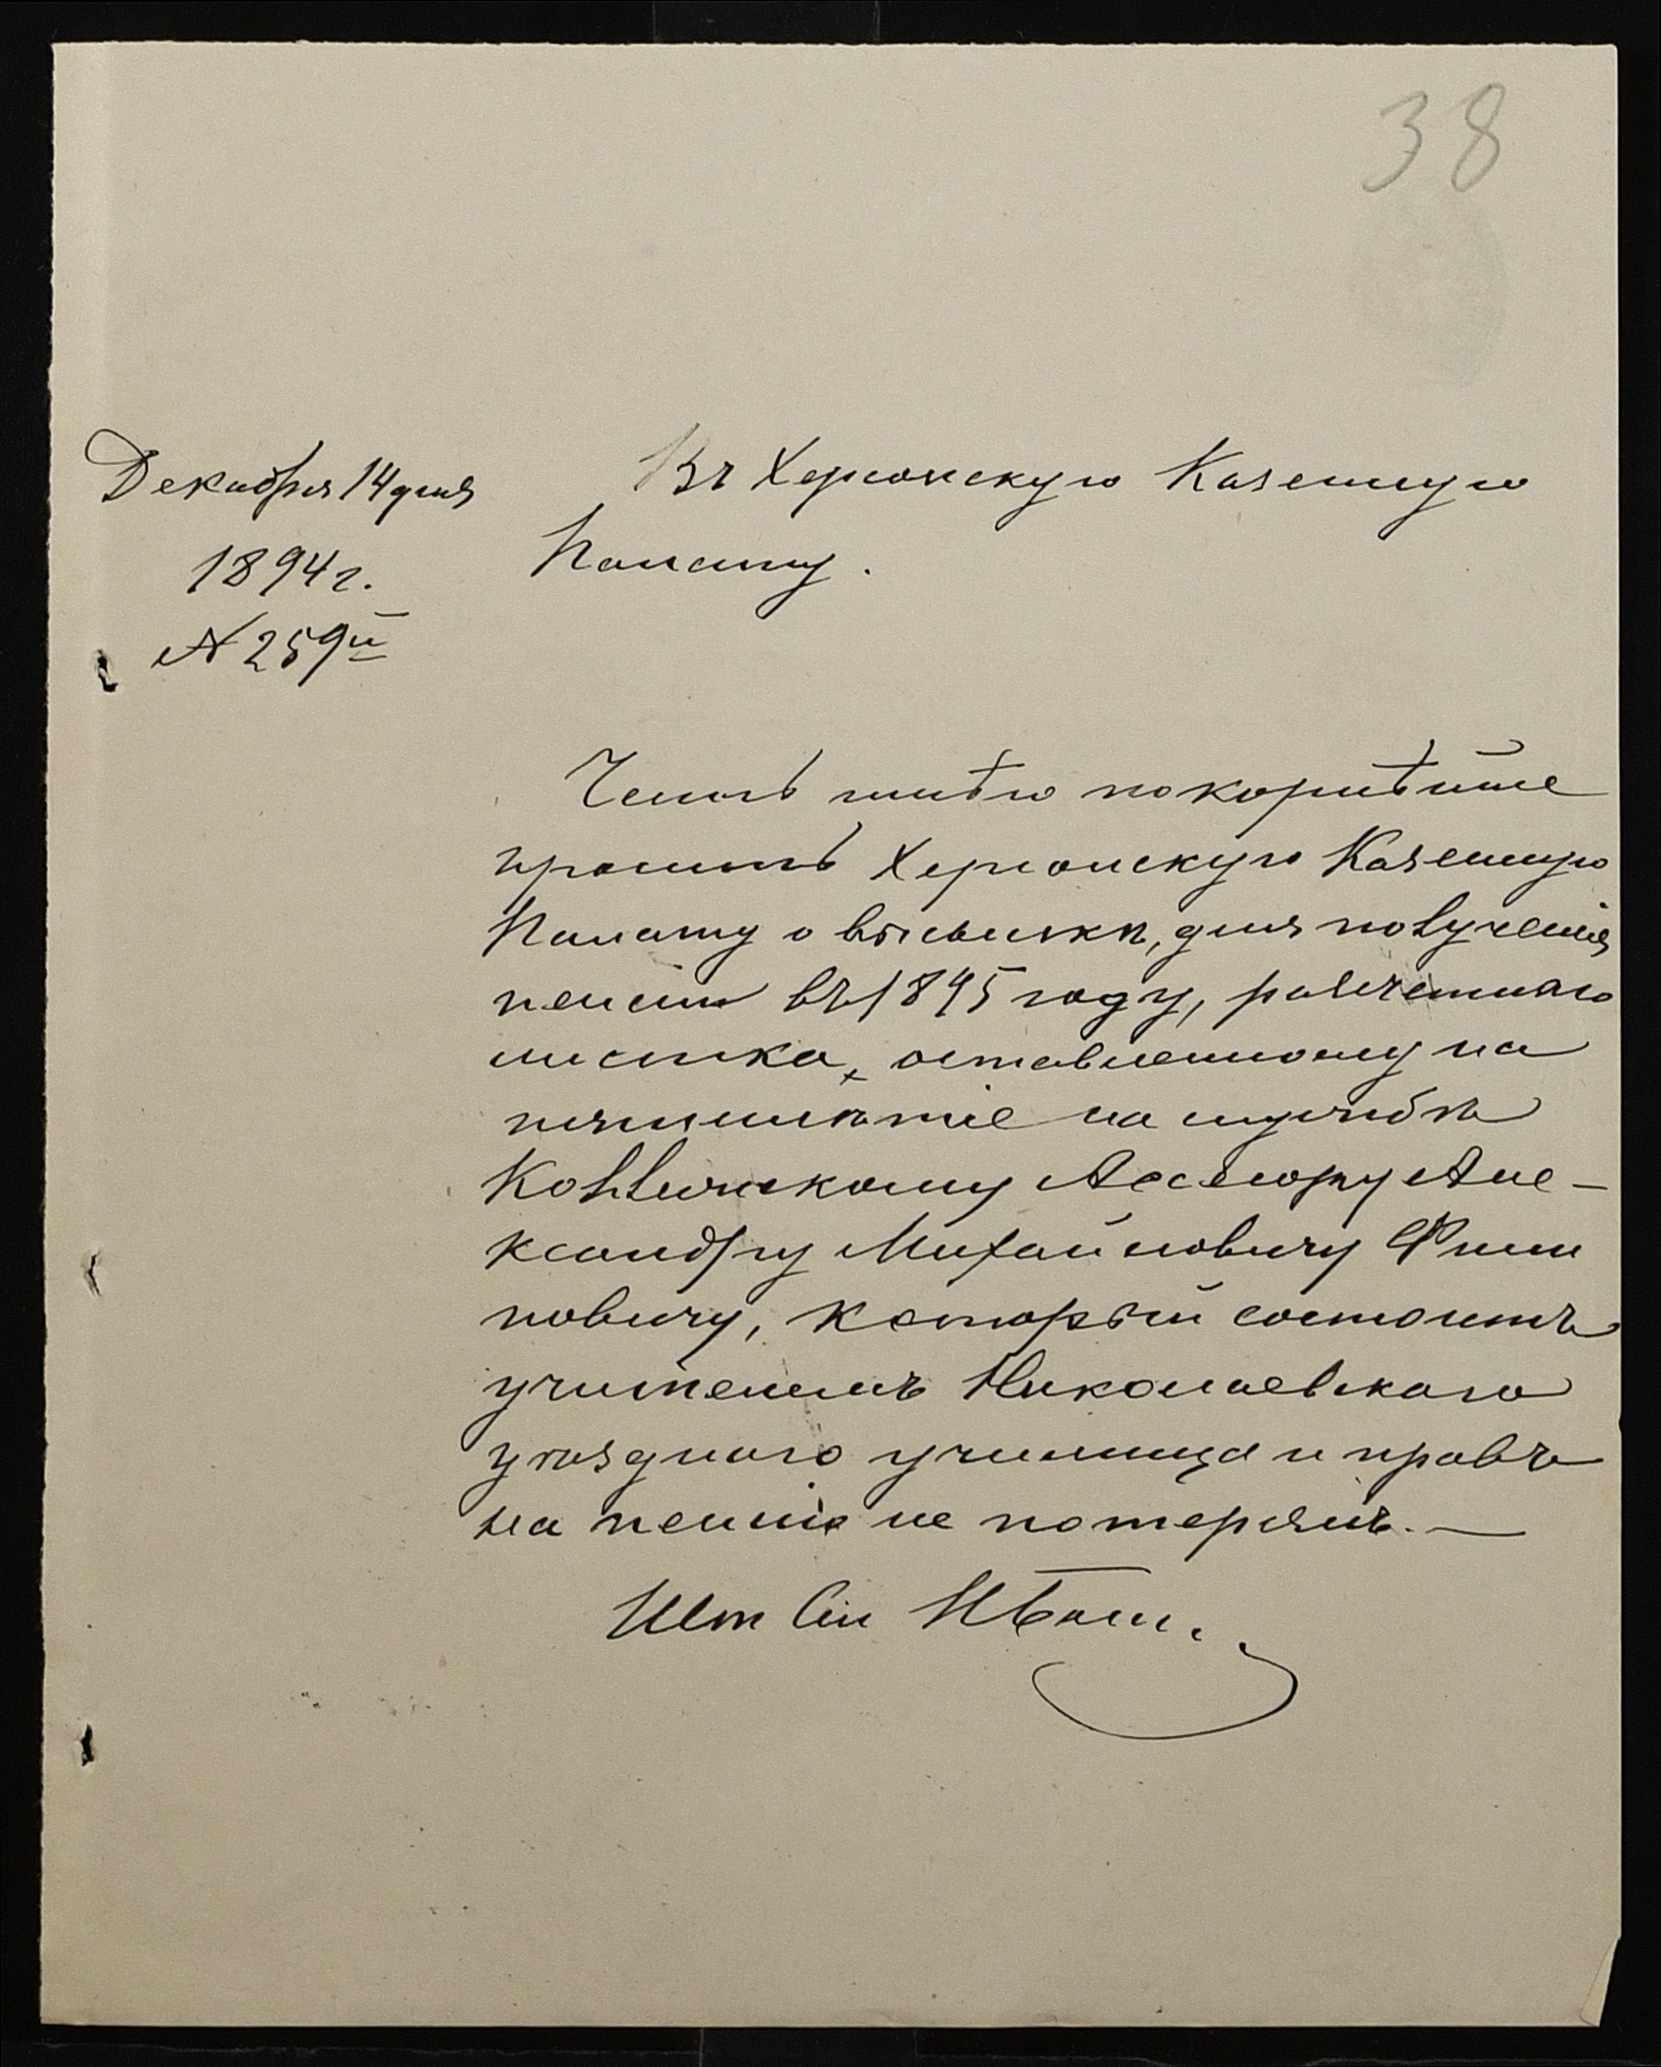 38
Декабря 14 дня
1894 г.
№ 259й
Въ Херсонскую Казенную
Палату.
Честь имѣю покорнѣйше
просить Херсонскую Казенную
Палату о высылкѣ, для полученія
пенсіи въ 1895 году, расчетнаго
листка, оставленному на
пятилѣтіе на службѣ
Коллежскому Ассесору Але-
ксандру Михайловичу Фили
повичу, который состоитъ
учителемъ Николаевскаго
уѣзднаго училища и правъ
на пенсію не потерялъ. —